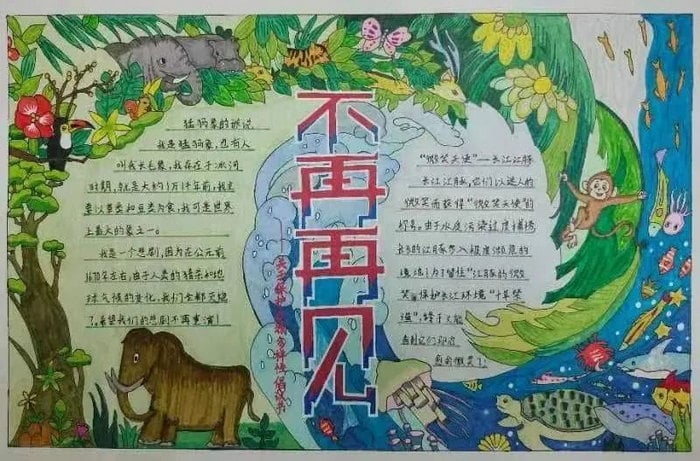 猛犸象的诉说
我是猛犸象,也有人
叫我长毛象,我存在于冰河
时期,就是大约1万1千年前,我主
要以草类和豆类为食,我可是世界
上最大的象之一。
我是一个悲剧,因为在公元前
1670年左右,由于人类的猎杀和地
球气候的变化,我们全都灭绝
了,希望我们的悲剧不再重演!
不再再见
生物多样性倡议书
“微笑天使”——长江江豚
长江江豚,它们以迷人的
微笑而获得“微笑天使”的
称号。由于水质污染过度捕捞
长江的江豚步入极度濒危的
境地,为了留住“江豚的微
笑”保护长江环境“十年禁
渔”,终于又能
看到它们和你
看到微笑了